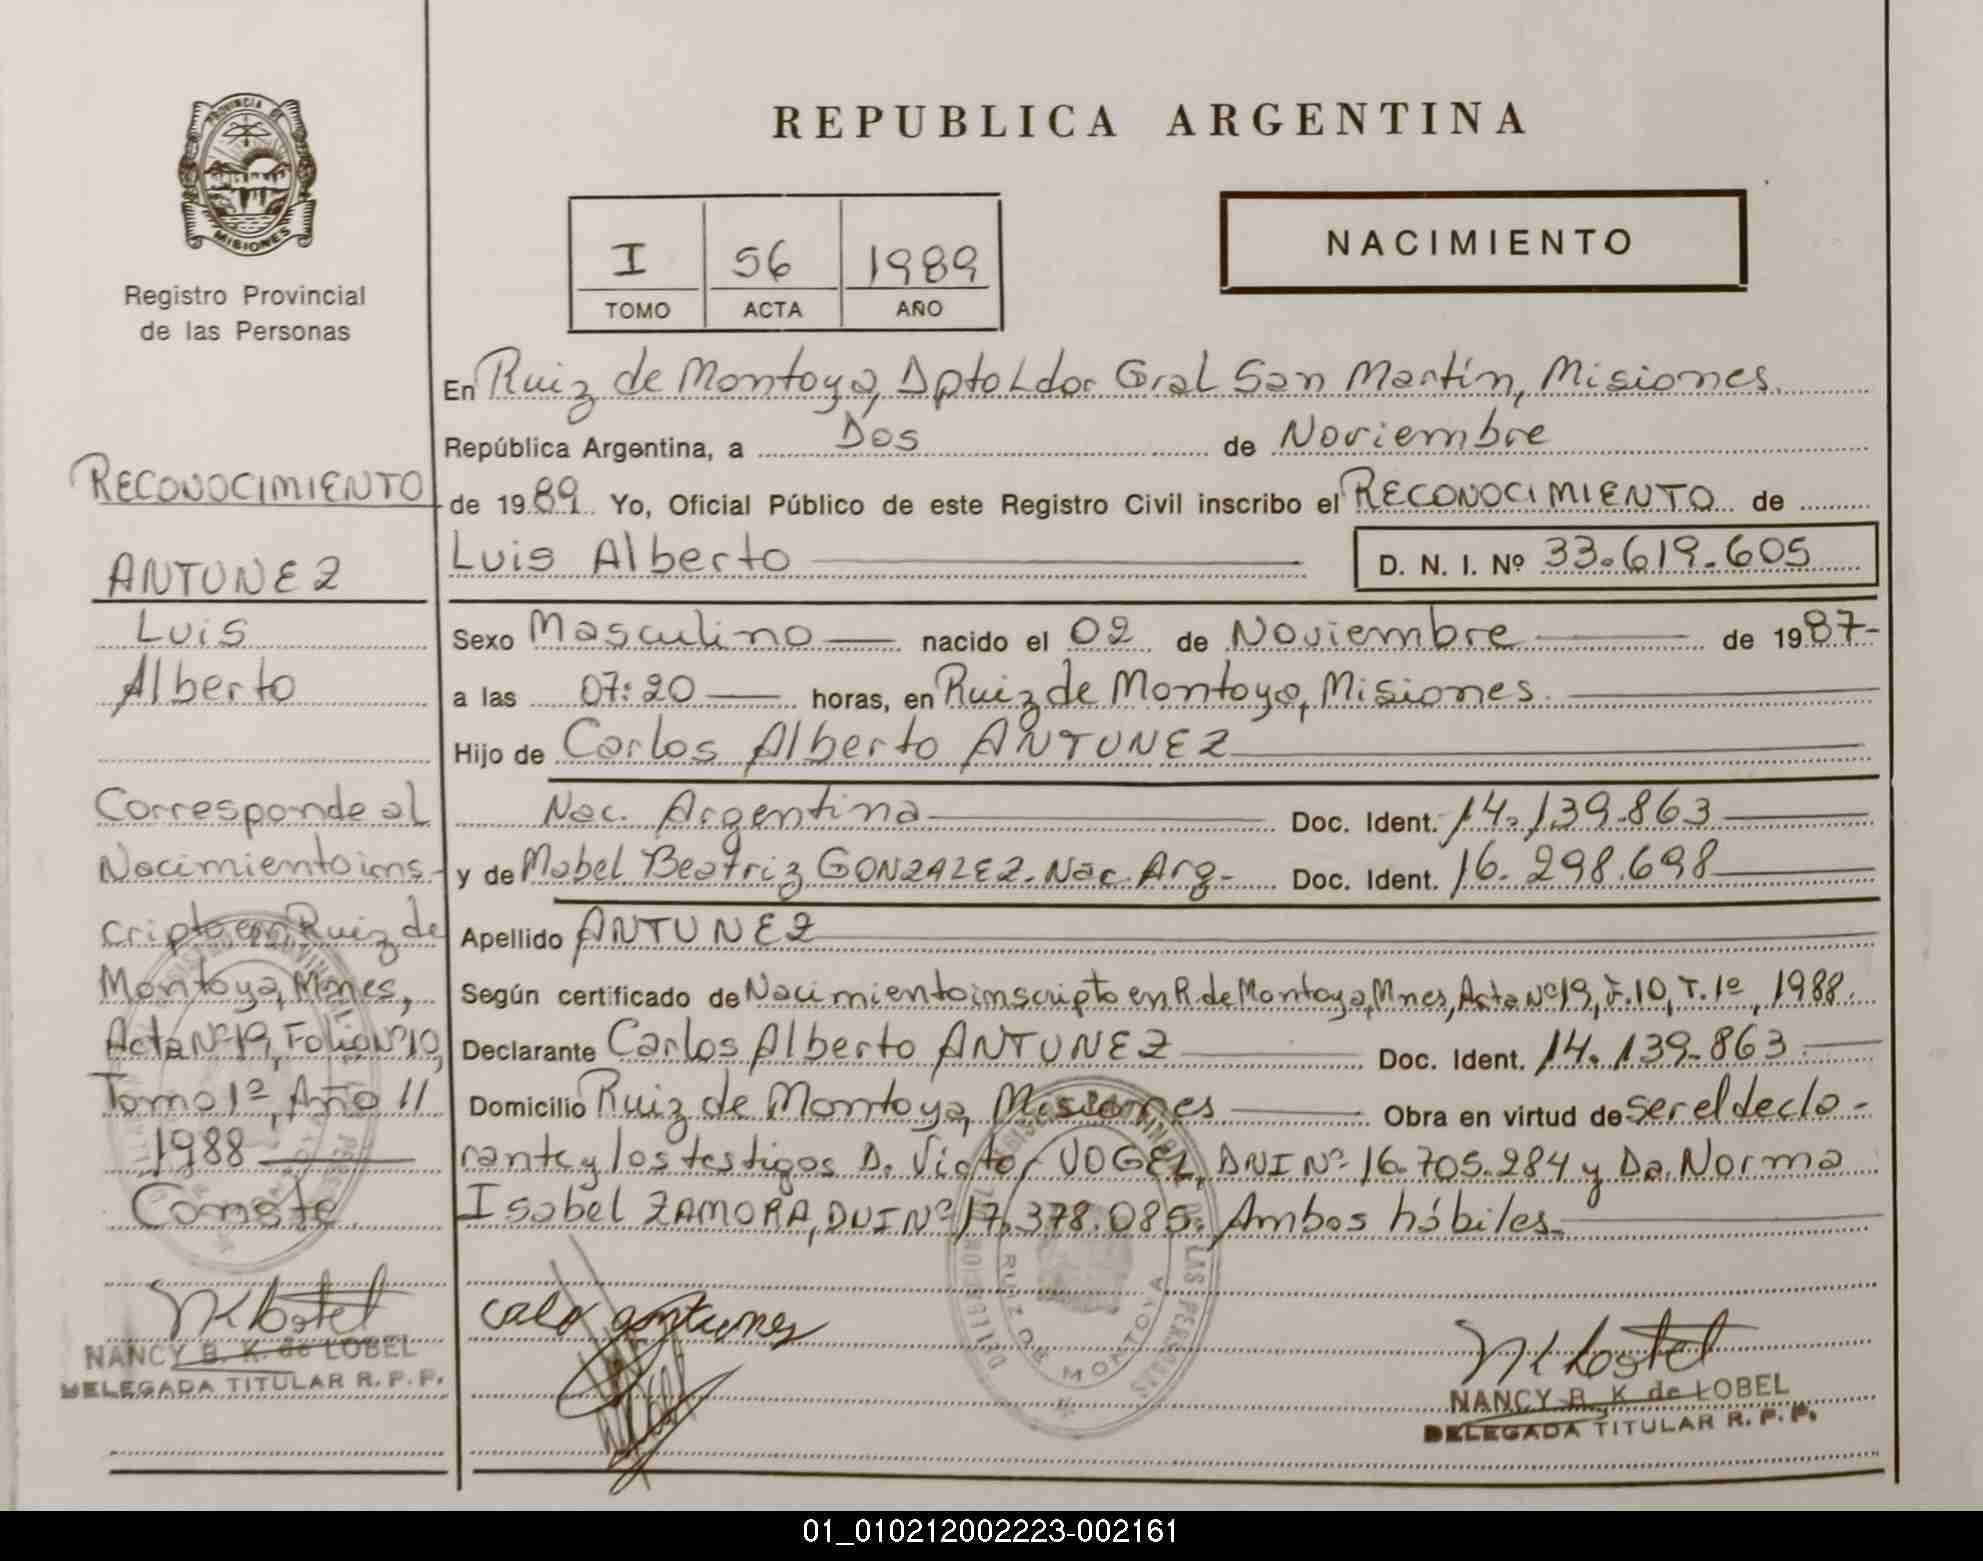 PROVINCIA DE
MISIONES
Registro Provincial
de las Personas
REPUBLICA ARGENTINA
I 56 1989
TOMO ACTA AÑO
NACIMIENTO
En Ruiz de Montoya, Dpto Ldor. Gral San Martín, Misiones.
República Argentina, a Dos de Noviembre
de 1989. Yo, Oficial Público de este Registro Civil inscribo el RECONOCIMIENTO de
Luis Alberto D. N. I. Nº 33.619.605
Sexo Masculino nacido el 02 de Noviembre de 1987-
a las 07:20 horas, en Ruiz de Montoya, Misiones.
Hijo de Carlos Alberto ANTUNEZ
Nac. Argentina Doc. Ident. 14.139.863
y de Mabel Beatriz GONZALEZ. Nac. Arg- Doc. Ident. 16.298.698
Apellido ANTUNEZ
Según certificado de Nacimiento inscripto en R. de Montoya, Mnes, Acta Nº19, F.10, T.1º, 1988.
Declarante Carlos Alberto ANTUNEZ Doc. Ident. 14.139.863
Domicilio Ruiz de Montoya, Misiones Obra en virtud de ser el decla-
rante y los testigos D. Victor VOGEL, DNI Nº 16.705.284 y Da. Norma
Isabel ZAMORA, DNI Nº 17.378.085. Ambos hábiles.
RECONOCIMIENTO
ANTUNEZ
Luis
Alberto
Corresponde al
Nacimiento ins-
cripto en Ruiz de
Montoya, Mnes,
Acta Nº19, Folio Nº10,
Tomo 1º, Año 11
1988
Conste.
NANCY B. K. de LOBEL
DELEGADA TITULAR R. P. P.
RUIZ DE MONTOYA
NANCY B. K. de LOBEL
DELEGADA TITULAR R. P. P.
01_010212002223-002161